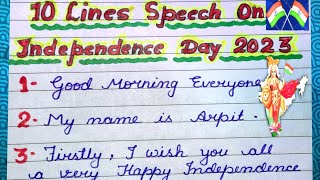 10 Lines Speech On
Independence Day 2023
1- Good Morning Everyone
2- My name is Arpit.
3- Firstly, I wish you all
a very Happy Independence